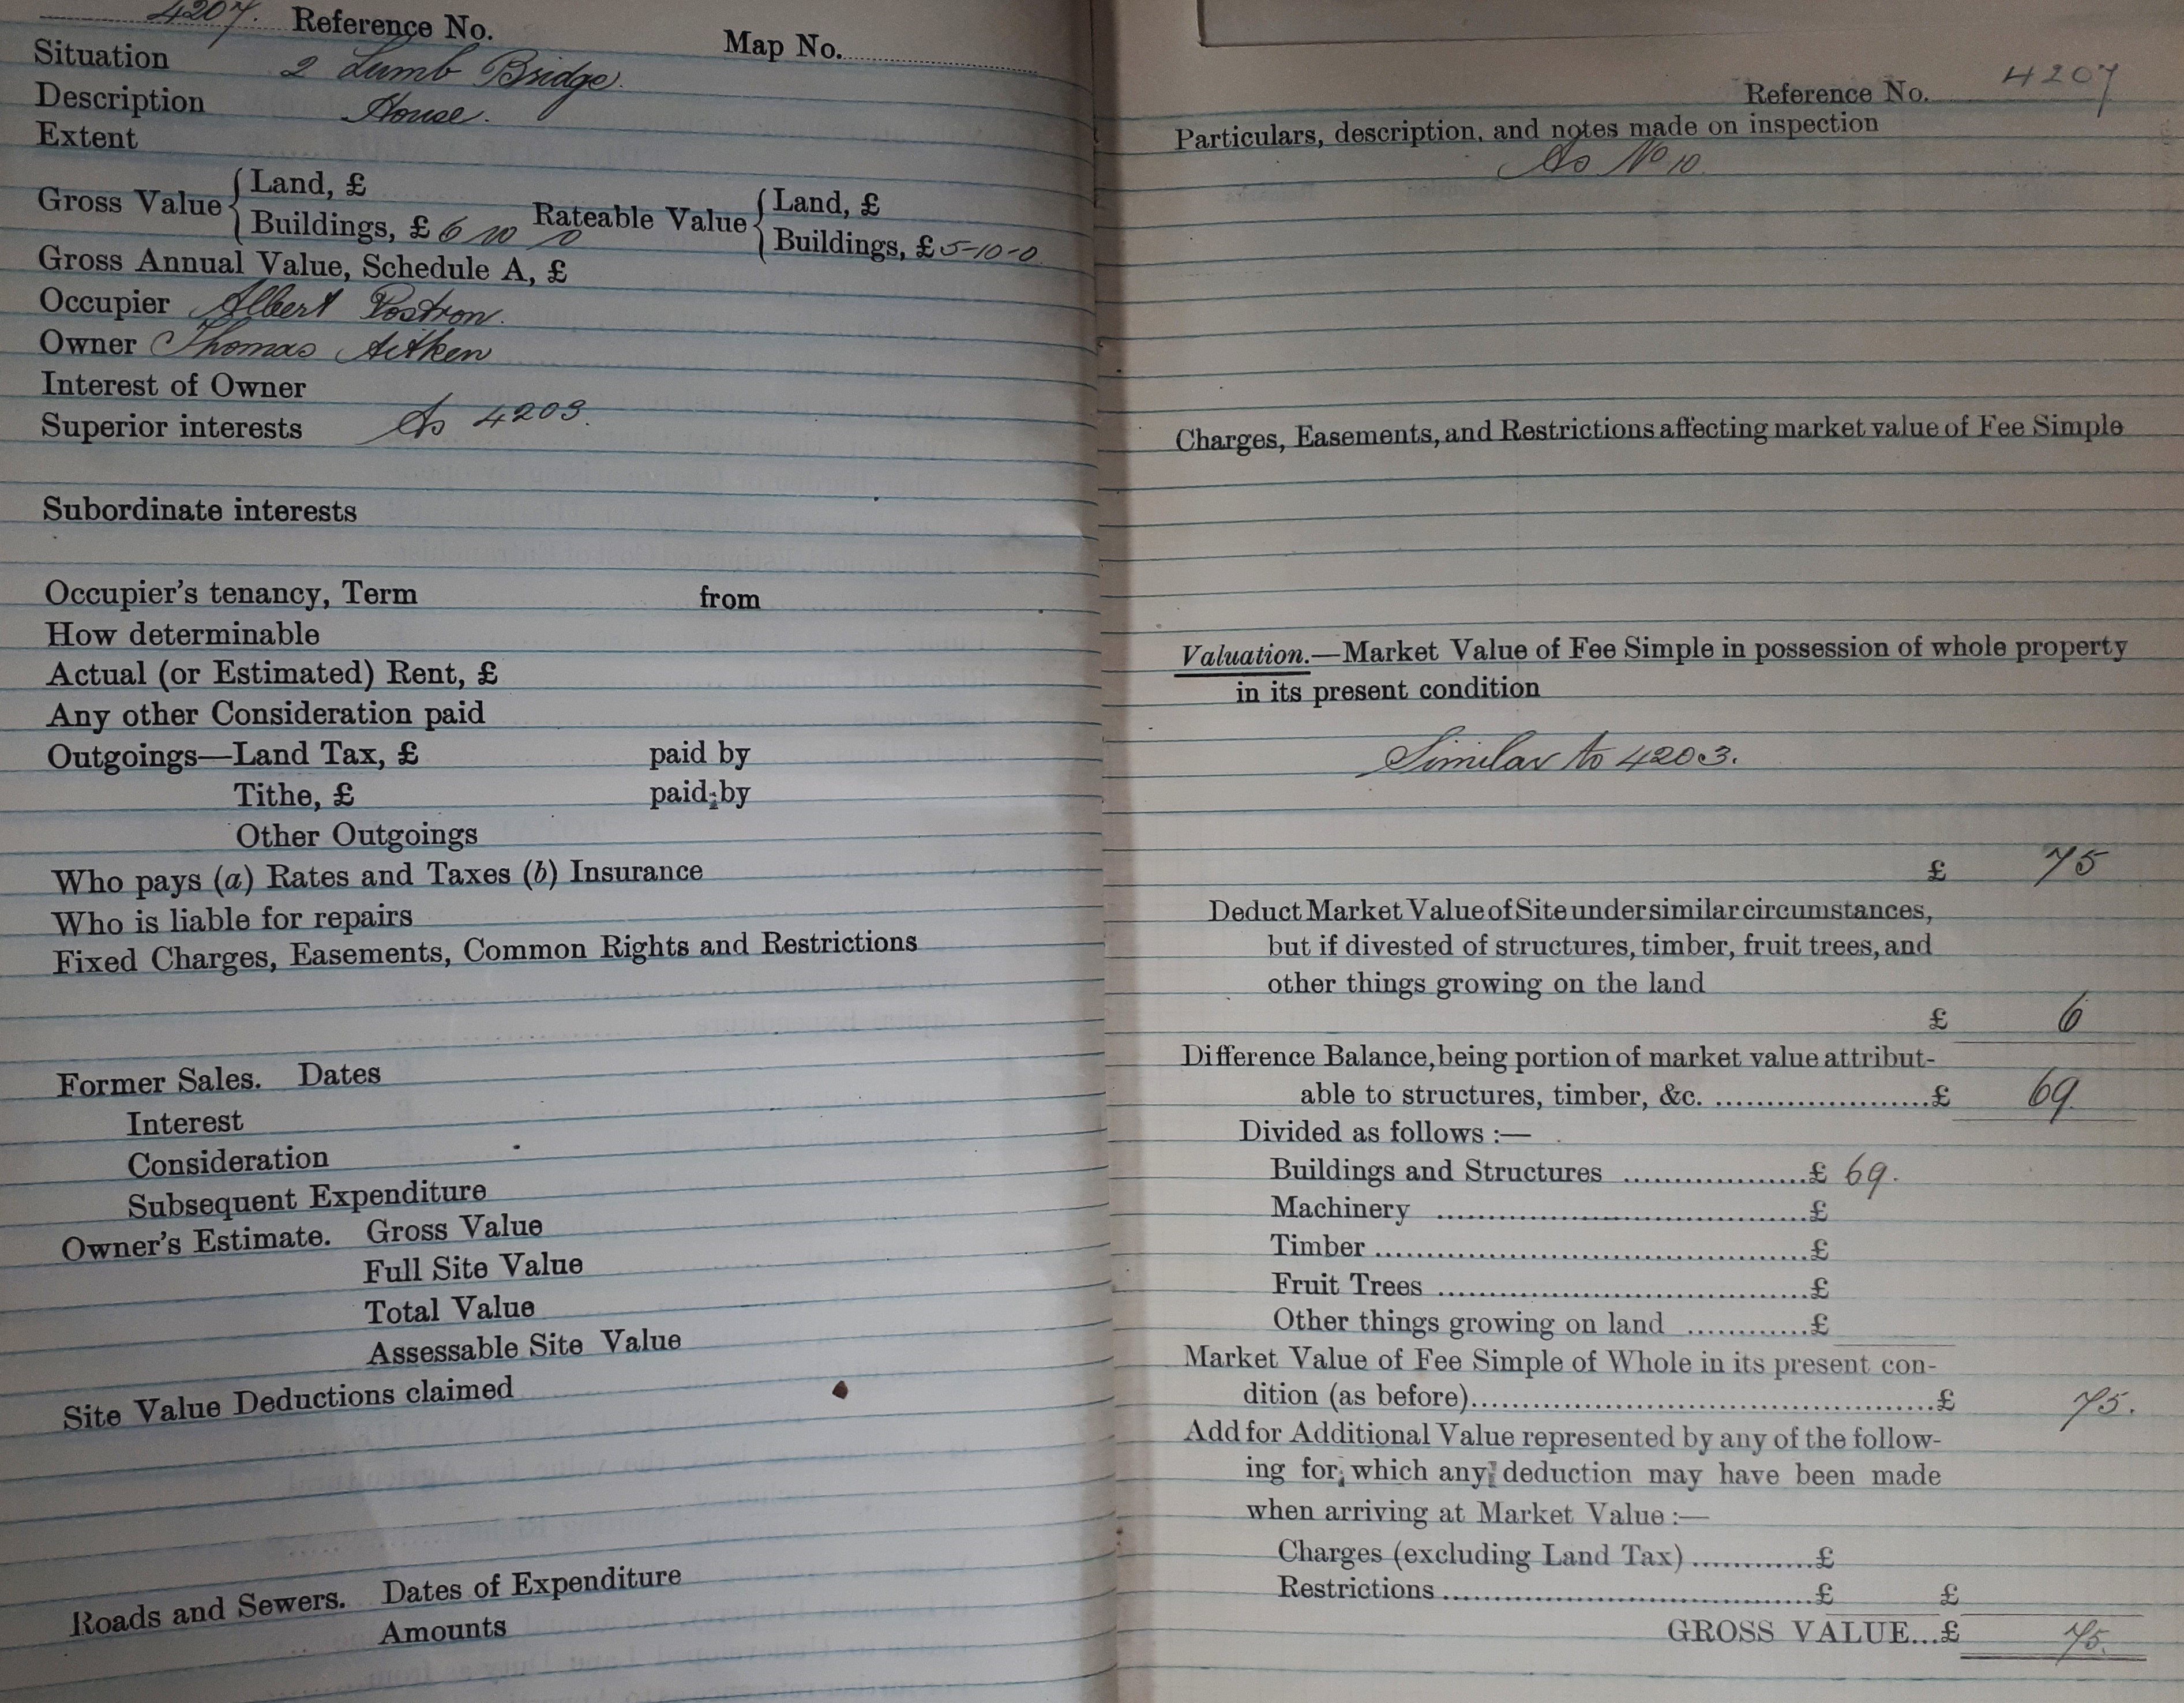 4207. Reference No. Map No.
Situation 2 Lumb Bridge.
Description House.
Extent
Gross Value { Land, £ Rateable Value { Land, £
Buildings, £ 6 10 0 Buildings, £ 5-10-0
Gross Annual Value, Schedule A, £
Occupier Albert Rostron.
Owner Thomas Aitken
Interest of Owner
Superior interests As 4203.
Subordinate interests
Occupier's tenancy, Term from
How determinable
Actual (or Estimated) Rent, £
Any other Consideration paid
Outgoings—Land Tax, £ paid by
Tithe, £ paid by
Other Outgoings
Who pays (a) Rates and Taxes (b) Insurance
Who is liable for repairs
Fixed Charges, Easements, Common Rights and Restrictions
Former Sales. Dates
Interest
Consideration
Subsequent Expenditure
Owner's Estimate. Gross Value
Full Site Value
Total Value
Assessable Site Value
Site Value Deductions claimed
Roads and Sewers. Dates of Expenditure
Amounts
Reference No. 4207
Particulars, description, and notes made on inspection
As No 10
Charges, Easements, and Restrictions affecting market value of Fee Simple
Valuation.—Market Value of Fee Simple in possession of whole property
in its present condition
Similar to 4203.
£ 75
Deduct Market Value of Site under similar circumstances,
but if divested of structures, timber, fruit trees, and
other things growing on the land
£ 6
Difference Balance, being portion of market value attribut-
able to structures, timber, &c. ......................£ 69.
Divided as follows :—
Buildings and Structures ...................£ 69.
Machinery ......................................£
Timber ............................................£
Fruit Trees ......................................£
Other things growing on land ............£
Market Value of Fee Simple of Whole in its present con-
dition (as before)................................................£ 75.
Add for Additional Value represented by any of the follow-
ing for which any deduction may have been made
when arriving at Market Value :—
Charges (excluding Land Tax) ............£
Restrictions ......................................£ £
GROSS VALUE...£ 75.